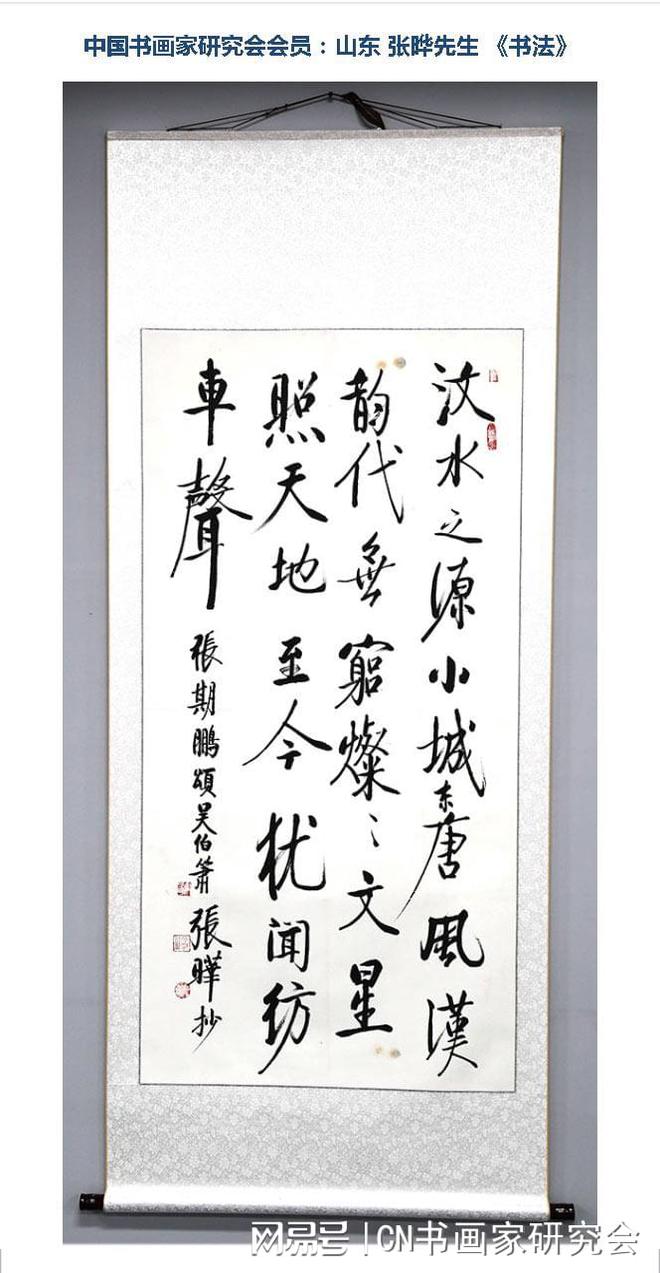 中国书画家研究会会员：山东 张晔先生 《书法》
汶水之源小城东唐风漢
韵代無窮燦々文星
照天地至今犹闻纺
車聲
張期鵬頌吴伯箫
張曄抄
网易号 | CN书画家研究会